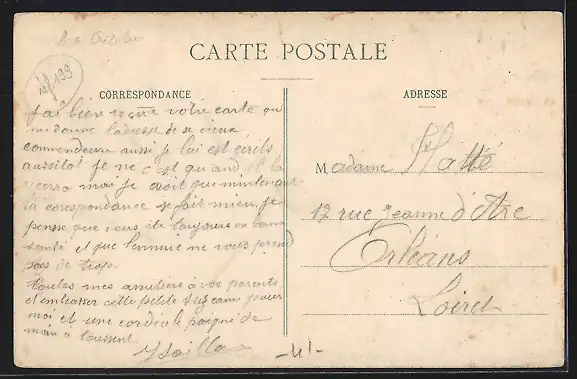 CARTE POSTALE
CORRESPONDANCE
ADRESSE
réf 199
J'ai bien reçue votre carte ou
me donne l'adresse de se vieux
aussi je lui est ecrits
aussitot je ne c'est quand il la
mai je croit que mintenant
la corespondance se fait mieux je
pense que vous ete toujours en bonne
santé et que l'ennuie ne vous prend
pas de trop.
toutes mes amitiers a vos parents
et embrasser cette petite Suzanne pour
moi et une cordiale poigné de
main a toussent
Madame Hatté
12 rue Jeanne d'Arc
Orléans
Loiret
-41-